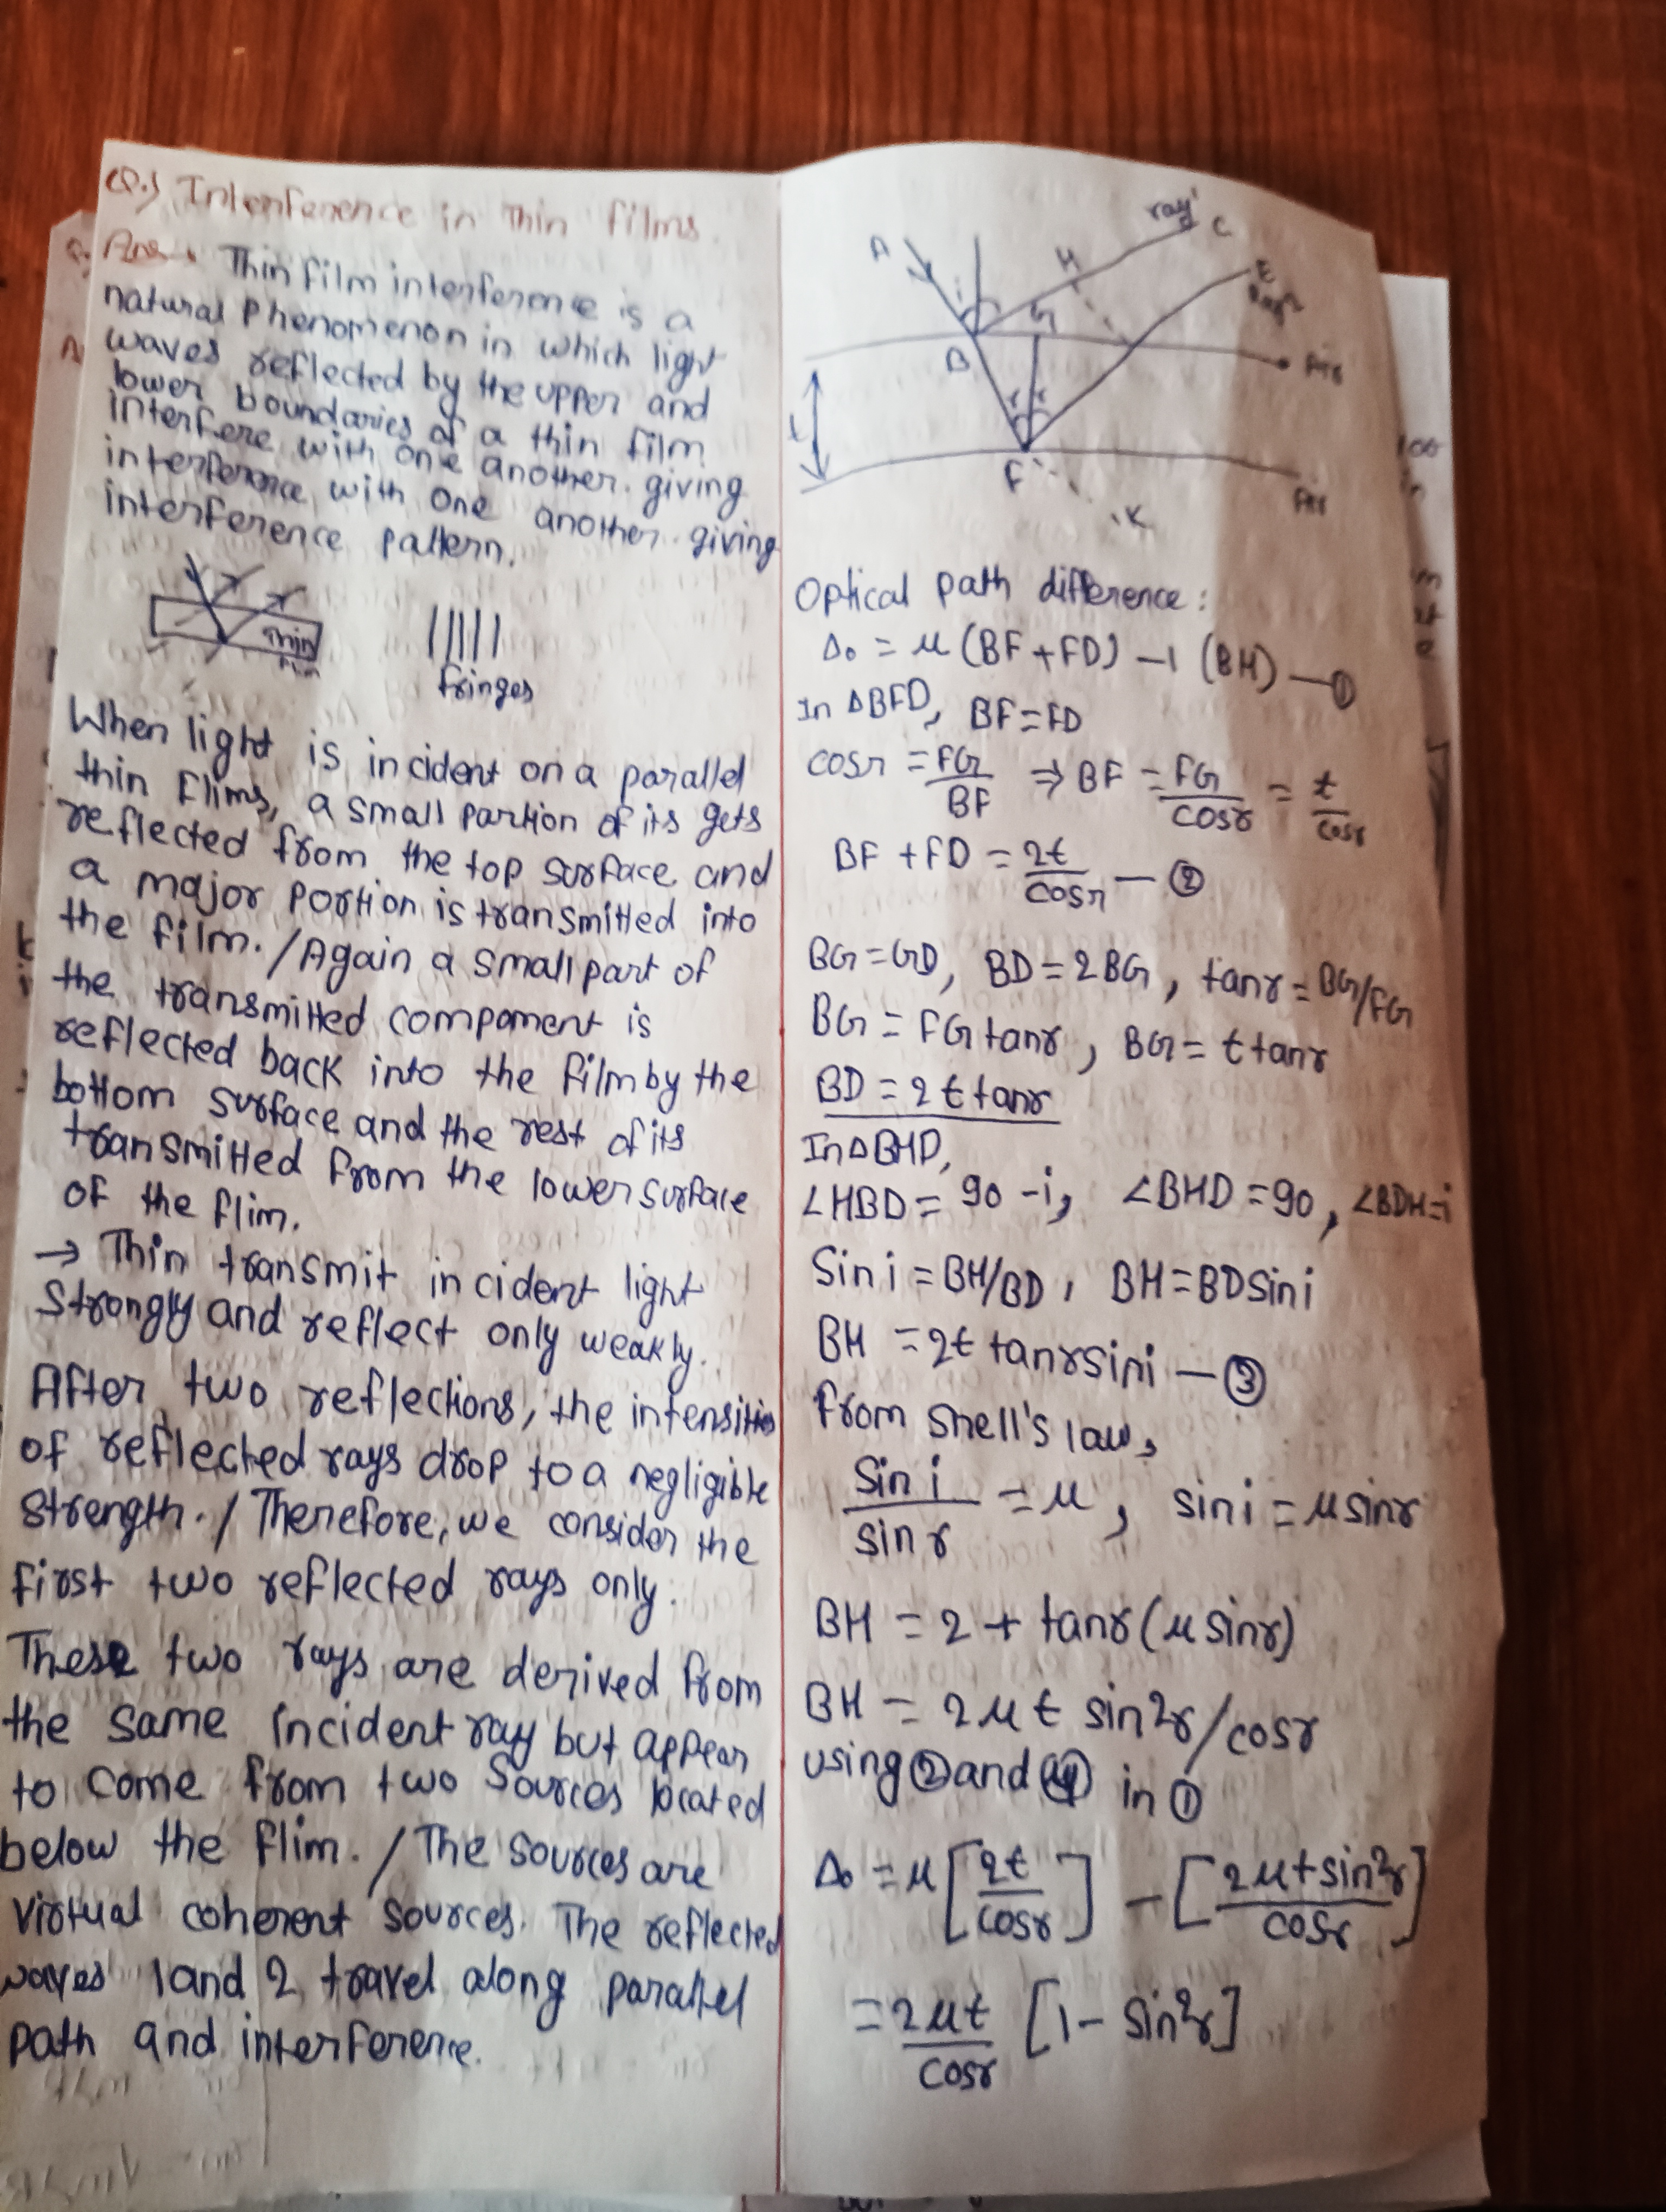 Q.) Interference in Thin films.
Ans→ Thin film interference is a
natural Phenomenon in which light
waves reflected by the upper and
lower boundaries of a thin film
interfere with one another. giving
interference with one another. giving
interference pattern.
Thin
film
fringes
When light is incident on a parallel
thin flims, a small portion of its gets
reflected from the top surface and
a major portion is transmitted into
the film. / Again a small part of
the transmitted component is
reflected back into the film by the
bottom surface and the rest of its
transmitted from the lower surface
of the flim.
→ Thin transmit incident light
strongly and reflect only weakly.
After two reflections, the intensities
of reflected rays drop to a negligible
strength. / Therefore, we consider the
first two reflected rays only.
These two rays are derived from
the same incident ray but appear
to come from two sources located
below the flim. / The sources are
virtual coherent sources. The reflected
waves 1 and 2 travel along parallel
path and interference.
A
i
H
ray1
C
E
Ray2
B
G
Air
t
r r
F
K
Air
Optical path difference:
Δ₀ = μ (BF+FD) - 1 (BH) — ①
In ΔBFD, BF=FD
cosr = FG/BF ⇒ BF = FG/cosr = t/cosr
BF + FD = 2t/cosr — ②
BG=GD, BD=2BG, tanr = BG/FG
BG = FG tanr, BG = t tanr
BD = 2 t tanr
In Δ BHD,
∠HBD = 90 - i, ∠BHD = 90, ∠BDH=i
Sin i = BH/BD, BH=BD Sin i
BH = 2t tanr sin i — ③
From snell's law,
Sin i/sin r = μ, sin i = μ sinr
BH = 2 t tanr (μ sinr)
BH = 2 μ t sin²r/cosr
using ② and ④ in ①
Δ₀ = μ [2t/cosr] - [2μt sin²r/cosr]
= 2μt/cosr [1 - sin²r]